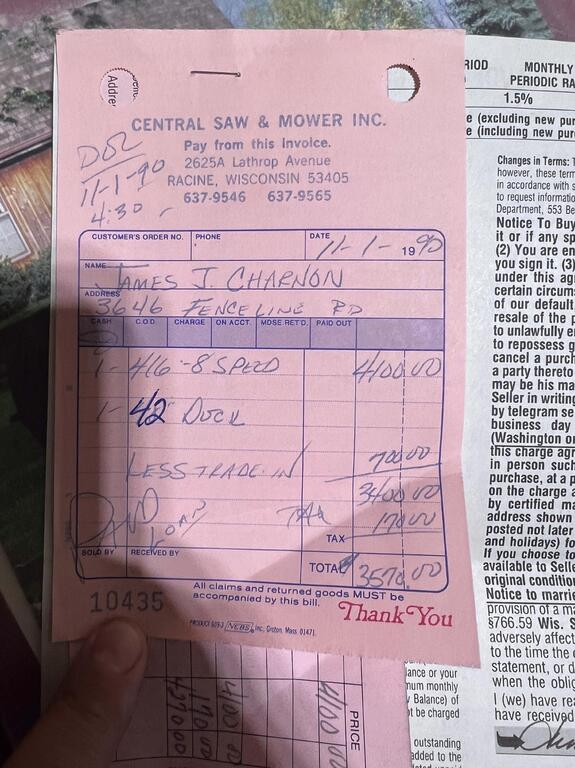 CENTRAL SAW & MOWER INC.
Pay from this Invoice.
2625A Lathrop Avenue
RACINE, WISCONSIN 53405
637-9546 637-9565
DOL
11-1-90
4:30
CUSTOMER'S ORDER NO. PHONE DATE 11-1- 1990
NAME JAMES J. CHARNON
ADDRESS 3646 FENCELINE RD
CASH C.O.D. CHARGE ON ACCT. MDSE. RET'D. PAID OUT
1- 416-8 SPEED 4100.00
1- 42 DUCK
LESS TRADE-IN 700.00
3400.00
TAX 170.00
SOLD BY RECEIVED BY
TOTAL 3570.00
10435
All claims and returned goods MUST be
accompanied by this bill.
Thank You
PRODUCT 609-3 NEBS Inc., Groton, Mass. 01471.
PRICE
4100 00
170 00
MONTHLY
PERIODIC RA
1.5%
e (excluding new pur
e (including new pur
Changes in Terms: T
however, these term
in accordance with s
to request informatio
Department, 553 Be
Notice To Buy
it or if any sp
(2) You are en
you sign it. (3)
under this ag
certain circum
of our default
resale of the p
to unlawfully e
to repossess g
cancel a purch
a party thereto
may be his ma
Seller in writing
by telegram se
business day
(Washington or
this charge agr
in person such
purchase, at a p
on the charge a
by certified ma
address shown
posted not later
and holidays) fo
If you choose to
available to Selle
original condition
Notice to marrie
provision of a ma
§766.59 Wis. S
adversely affect
to the time the
statement, or d
when the oblig
I (we) have rea
have received
lance or your
num monthly
v Balance) of
ot be charged
outstanding
added to the